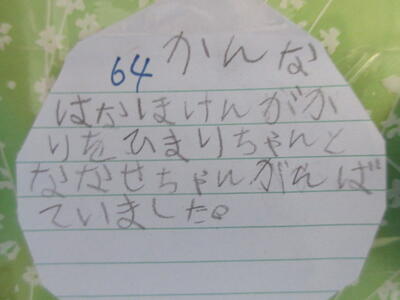 64 かんな
はなほけんがか
りをひまりちゃんと
ななせちゃんがんば
ていました。